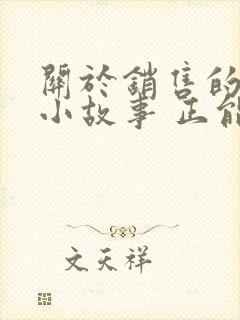 關於銷售的
小故事 正能
文天祥